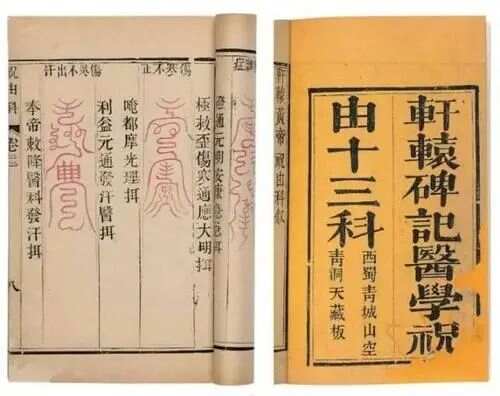 軒轅碑記醫學祝
由十三科
西蜀青城山空
青洞天藏板
軒轅黃帝祝由科叙
傷寒不止
極救歪傷突通應大明弭
唵都摩光理弭
傷寒不出汗
利益元通發汗醫弭
奉帝敕隆醫科發汗弭
祝由科 卷三 八